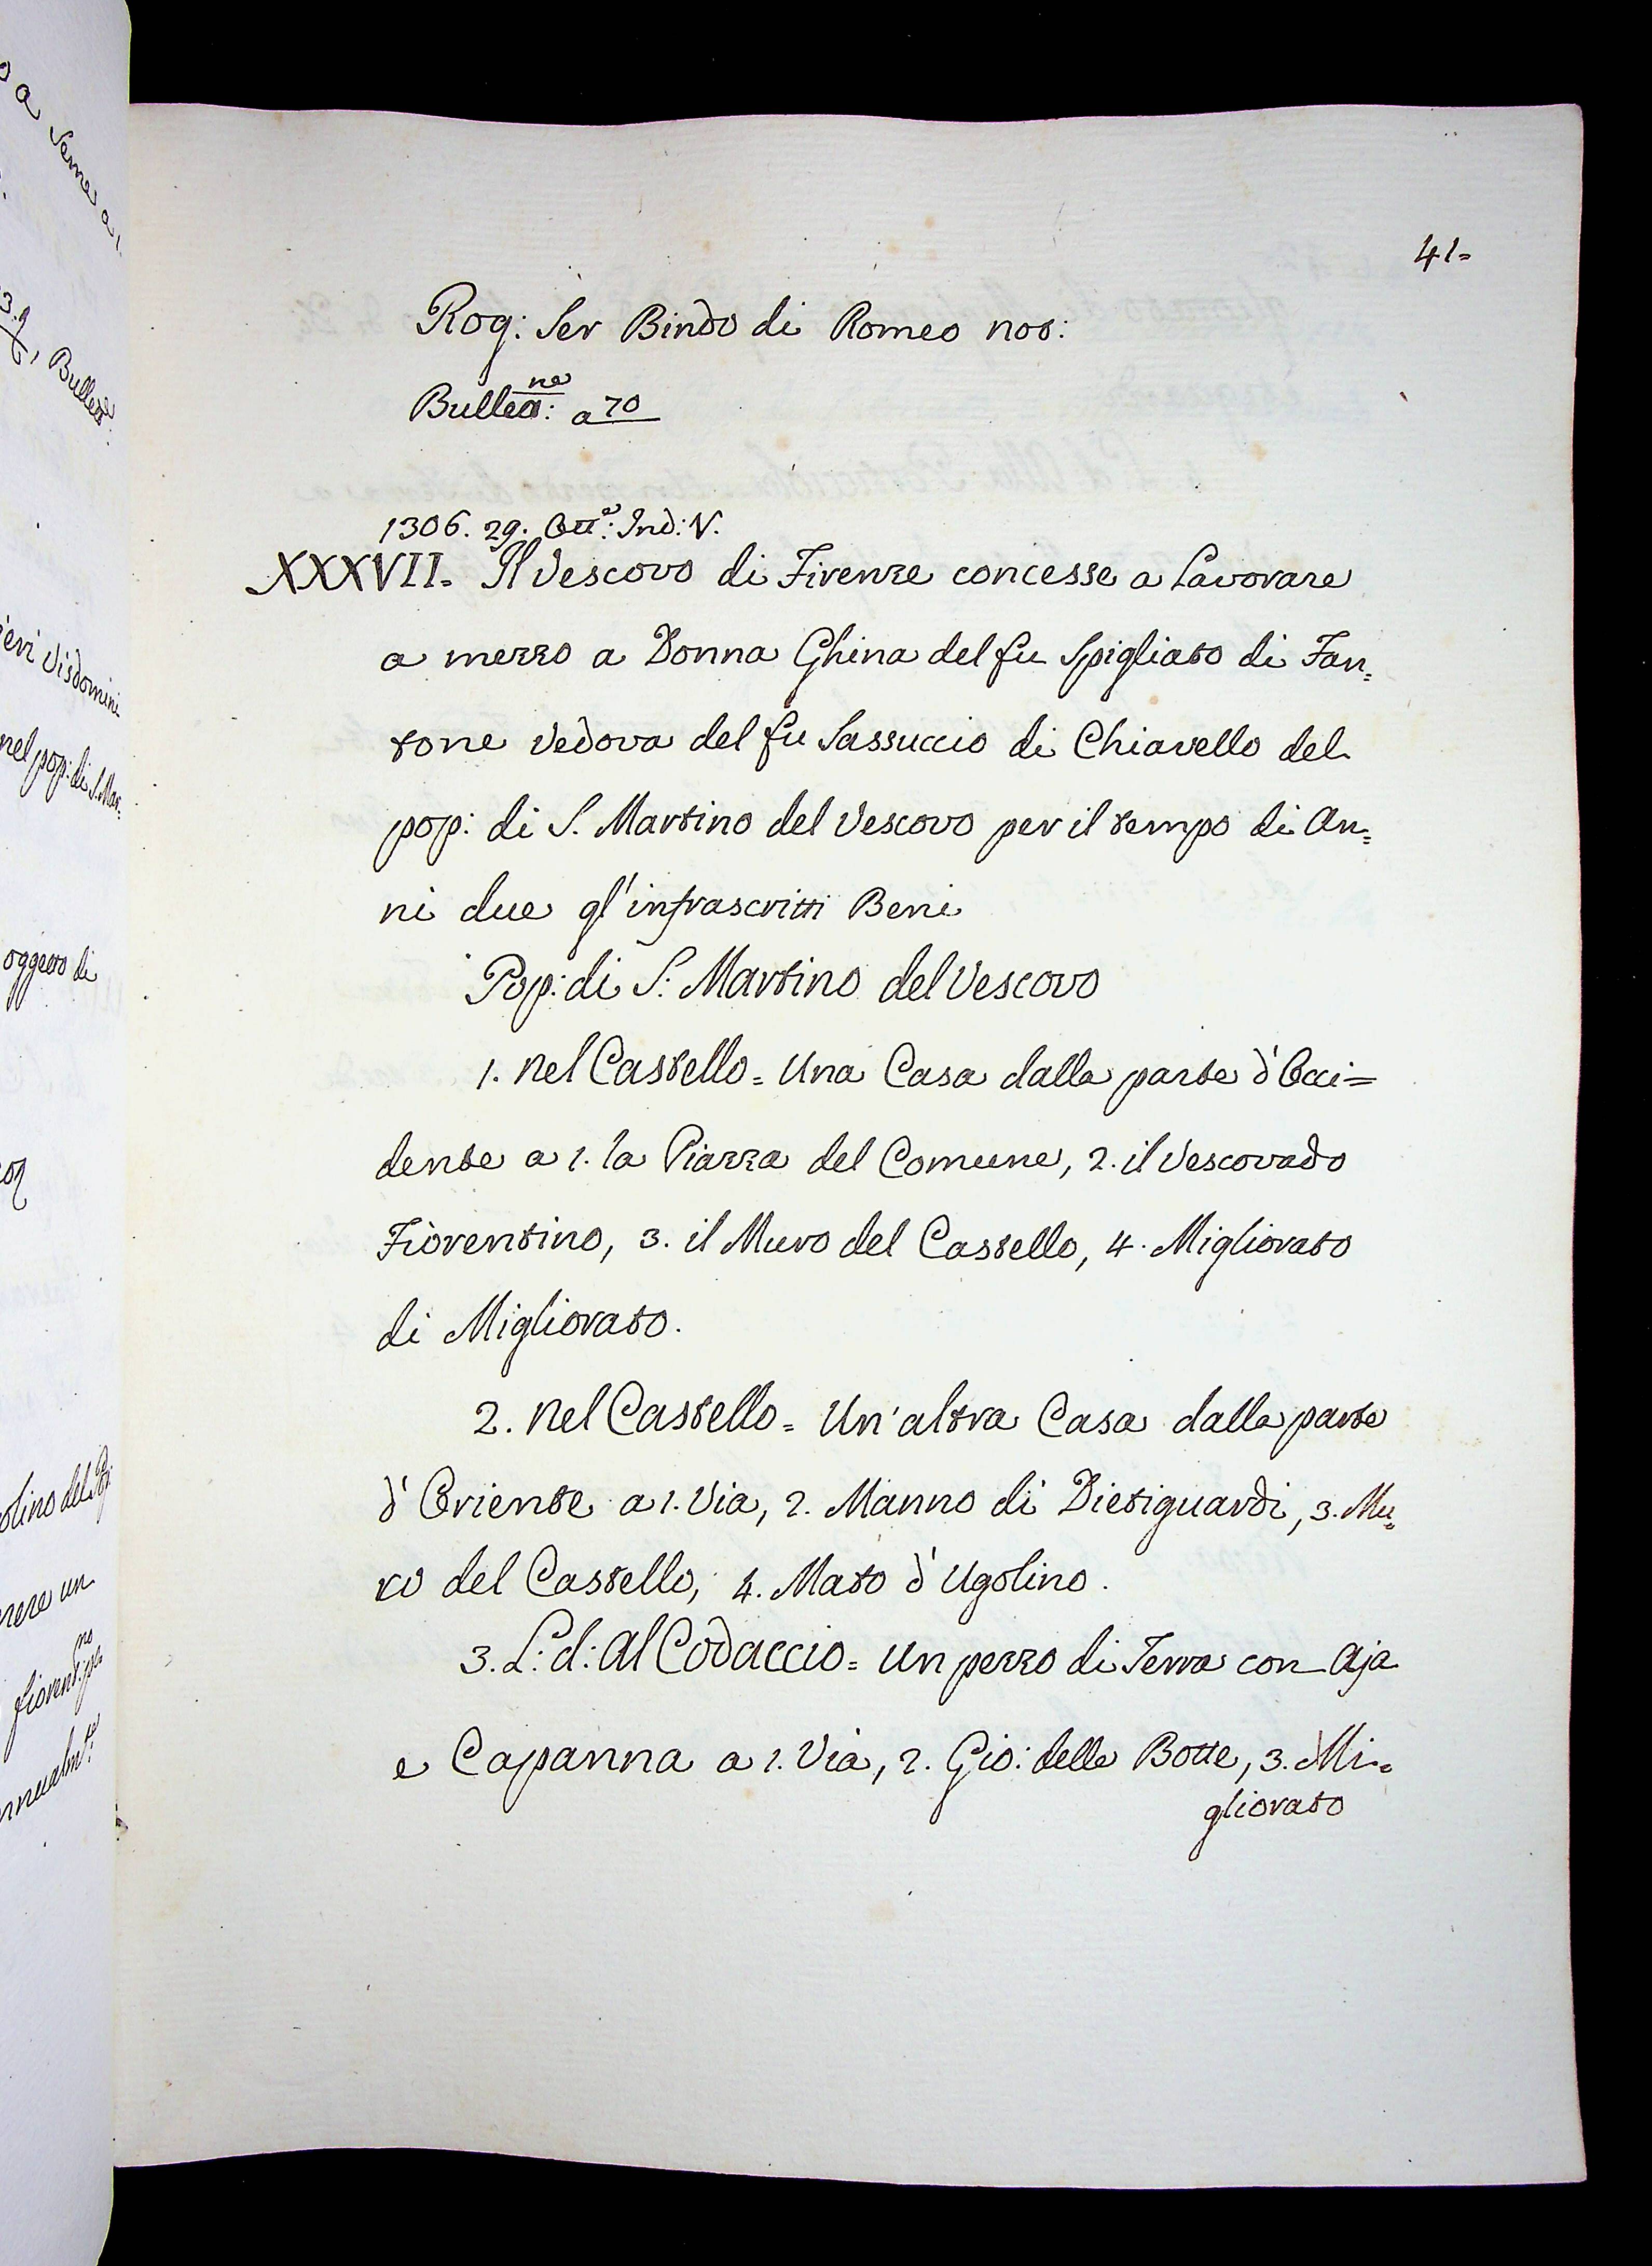 41=
Rog: Ser Bindo di Romeo not:
Bullett:ne a 70
1306. 29. Ott.e: Ind: V.
XXXVII. Il Vescovo di Firenze concesse a Lavorare
a mezzo a Donna Ghina del fu Spigliato di Fan=
tone Vedova del fu Sassuccio di Chiavello del
pop: di S. Martino del Vescovo per il tempo di An=
ni due gl'infrascritti Beni
Pop: di S: Martino del Vescovo
1. Nel Castello = Una Casa dalla parte d'Occi=
dente a 1. la Piazza del Comune, 2. il Vescovado
Fiorentino, 3. il Muro del Castello, 4. Migliorato
di Migliorato.
2. Nel Castello = Un'altra Casa dalla parte
d'Oriente a 1. Via, 2. Manno di Dietiguardi, 3. Mu=
ro del Castello, 4. Mato d'Ugolino.
3. L: d: Al Codaccio = Un pezzo di Terra con Aja
e Capanna a 1. Via, 2. Gio: delle Botte, 3. Mi=
gliorato